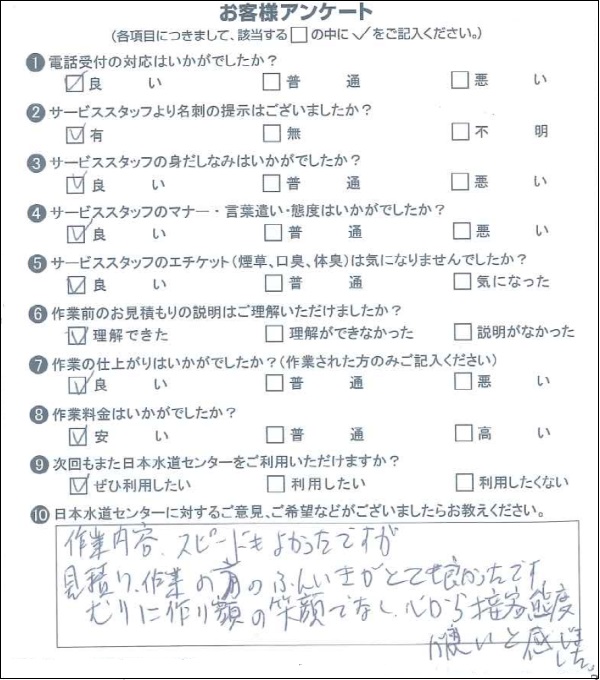 お客様アンケート
(各項目につきまして、該当する□の中に✓をご記入ください。)
❶ 電話受付の対応はいかがでしたか?
☑ 良い □ 普通 □ 悪い
❷ サービススタッフより名刺の提示はございましたか?
☑ 有 □ 無 □ 不明
❸ サービススタッフの身だしなみはいかがでしたか?
☑ 良い □ 普通 □ 悪い
❹ サービススタッフのマナー・言葉遣い・態度はいかがでしたか?
☑ 良い □ 普通 □ 悪い
❺ サービススタッフのエチケット(煙草、口臭、体臭)は気になりませんでしたか?
☑ 良い □ 普通 □ 気になった
❻ 作業前のお見積もりの説明はご理解いただけましたか?
☑ 理解できた □ 理解ができなかった □ 説明がなかった
❼ 作業の仕上がりはいかがでしたか?(作業された方のみご記入ください)
☑ 良い □ 普通 □ 悪い
❽ 作業料金はいかがでしたか?
☑ 安い □ 普通 □ 高い
❾ 次回もまた日本水道センターをご利用いただけますか?
☑ ぜひ利用したい □ 利用したい □ 利用したくない
❿ 日本水道センターに対するご意見、ご希望などがございましたらお教えください。
作業内容、スピードもよかったですが
見積り、作業の方のふんいきがとても良かったです
むりに作り顔の笑顔でなし、心から接客態度
が良いと感じました。